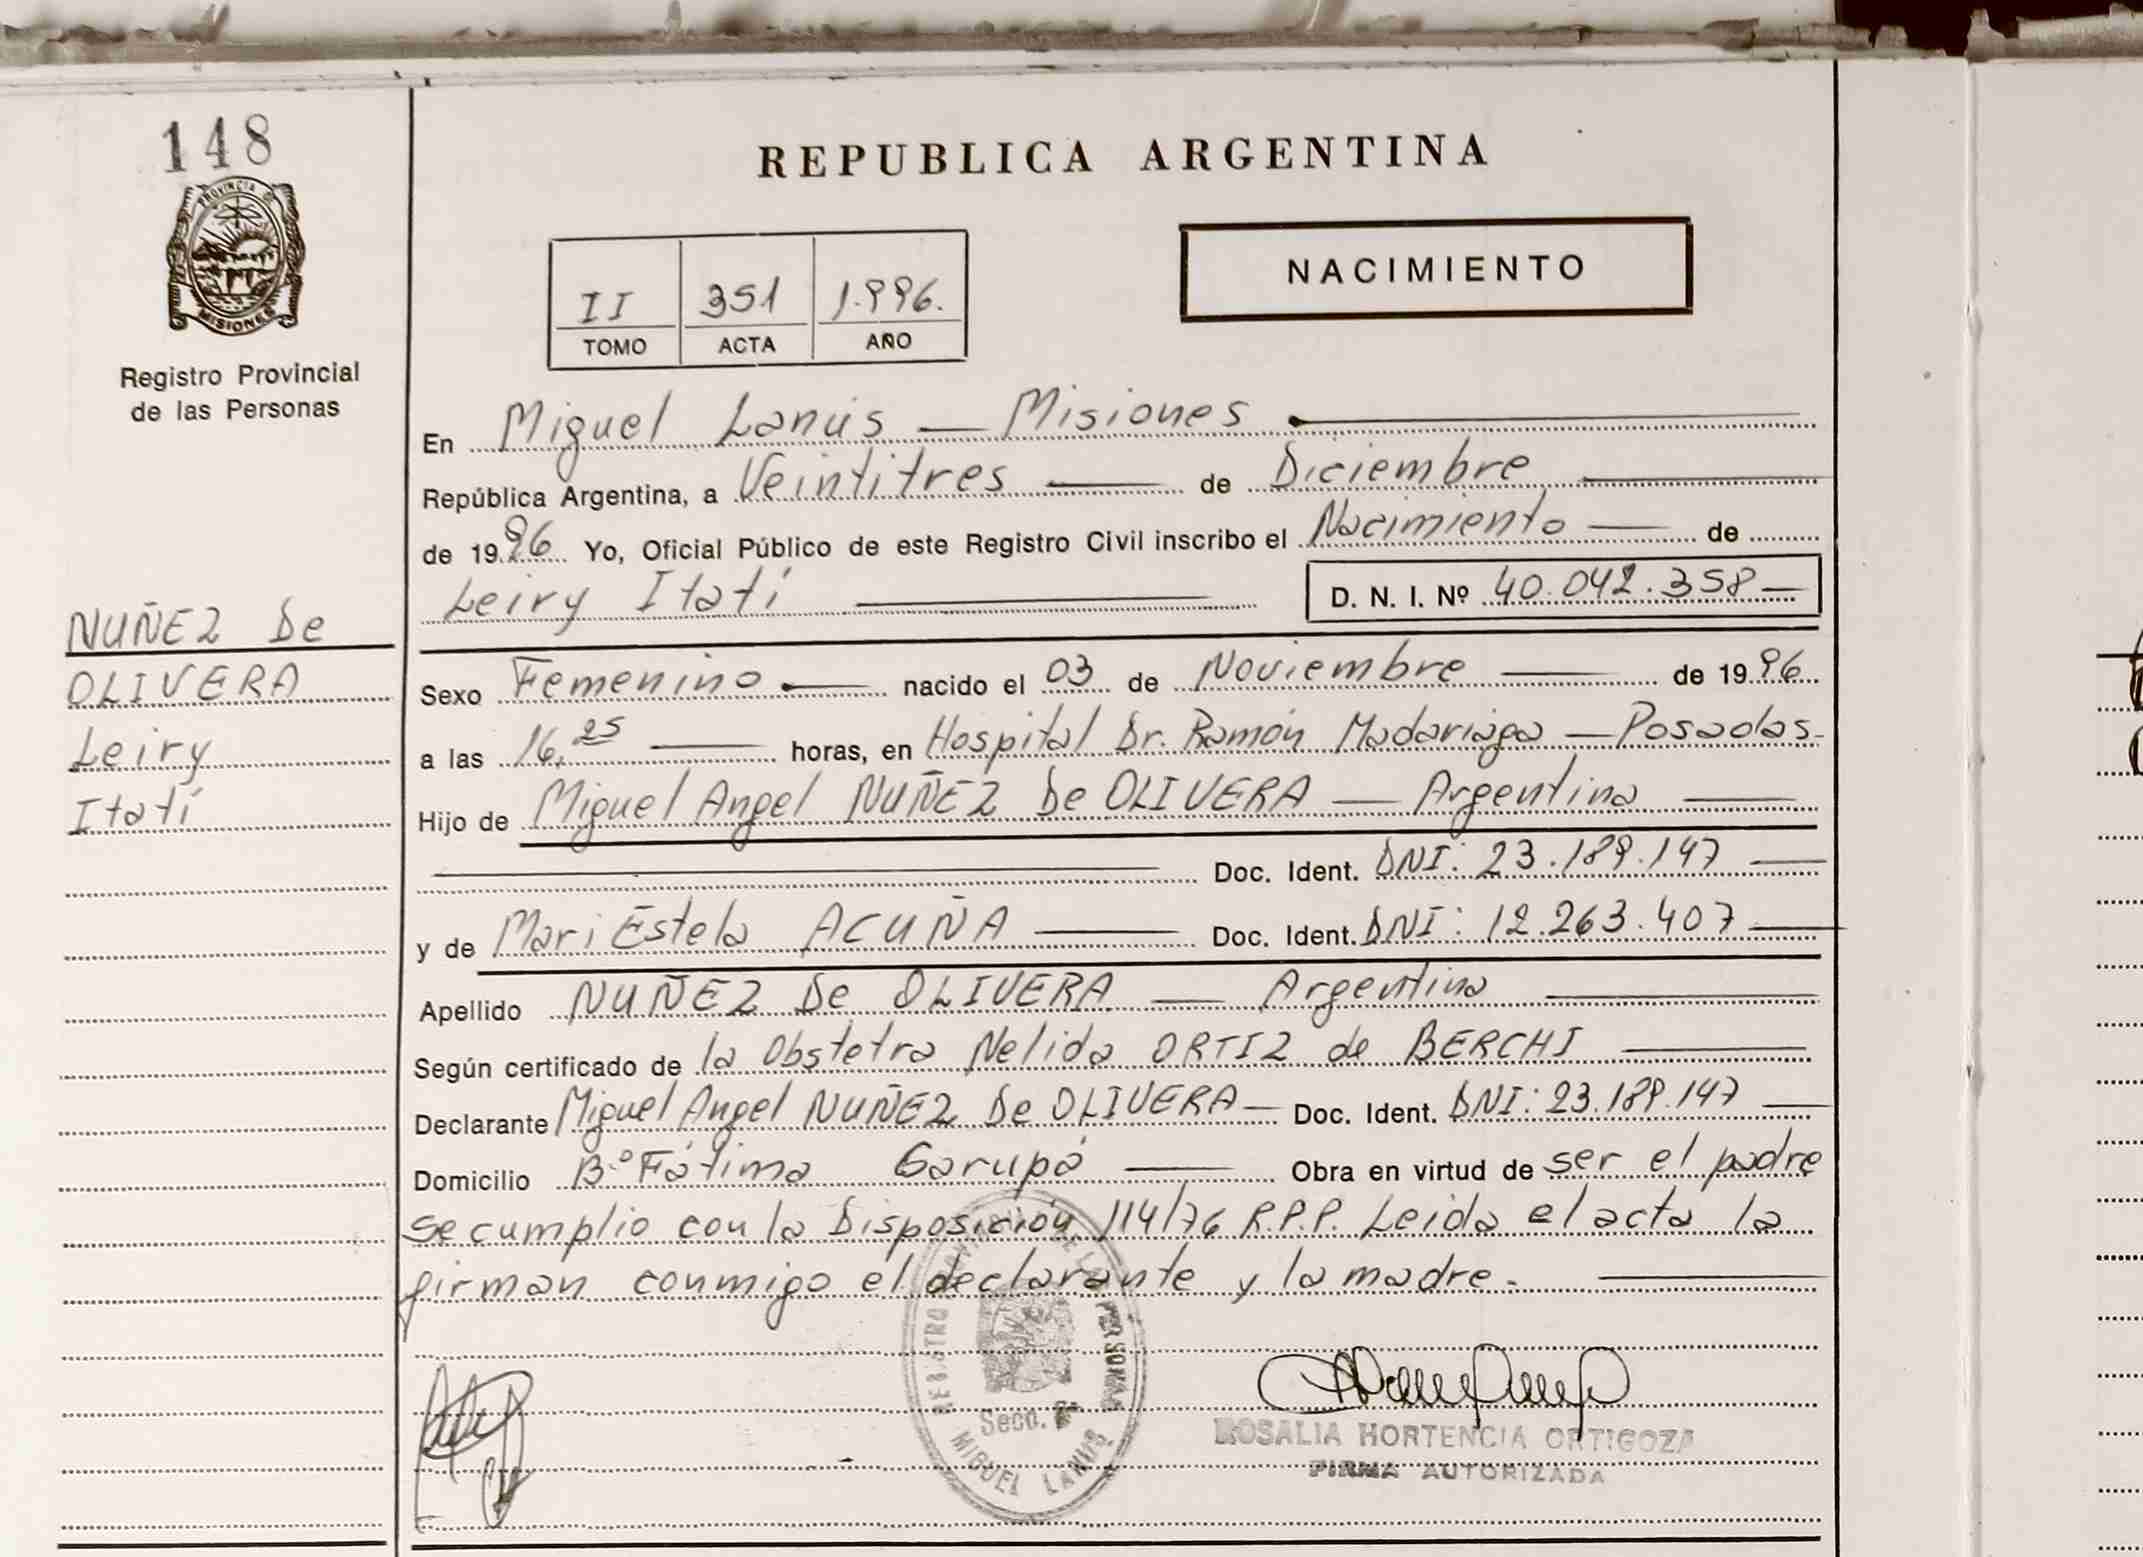 148
PROVINCIA DE
MISIONES
Registro Provincial
de las Personas
NUÑEZ De
OLIVERA
Leiry
Itatí
REPUBLICA ARGENTINA
II 351 1.996.
TOMO ACTA AÑO
NACIMIENTO
En Miguel Lanús — Misiones
República Argentina, a Veintitres — de Diciembre
de 1996 Yo, Oficial Público de este Registro Civil inscribo el Nacimiento — de
Leiry Itatí
D. N. I. Nº 40.042.358—
Sexo Femenino — nacido el 03 de Noviembre — de 1996
a las 16,25 — horas, en Hospital Dr. Ramón Madariaga — Posadas-
Hijo de Miguel Angel NUÑEZ De OLIVERA — Argentina —
Doc. Ident. DNI: 23.189.147 —
y de Mari Estela ACUÑA — Doc. Ident. DNI: 12.263.407 —
Apellido NUÑEZ De OLIVERA — Argentina —
Según certificado de la Obstetra Nelida ORTIZ de BERCHI —
Declarante Miguel Angel NUÑEZ De OLIVERA — Doc. Ident. DNI: 23.189.147 —
Domicilio B.º Fátima Garupá — Obra en virtud de ser el padre
se cumplio con la Disposición 114/76 R.P.P. Leida el acta la
firman conmigo el declarante y la madre.-
REGISTRO PROVINCIAL DE LAS PERSONAS
Secc.
MIGUEL LANUS
ROSALIA HORTENCIA ORTIGOZA
FIRMA AUTORIZADA